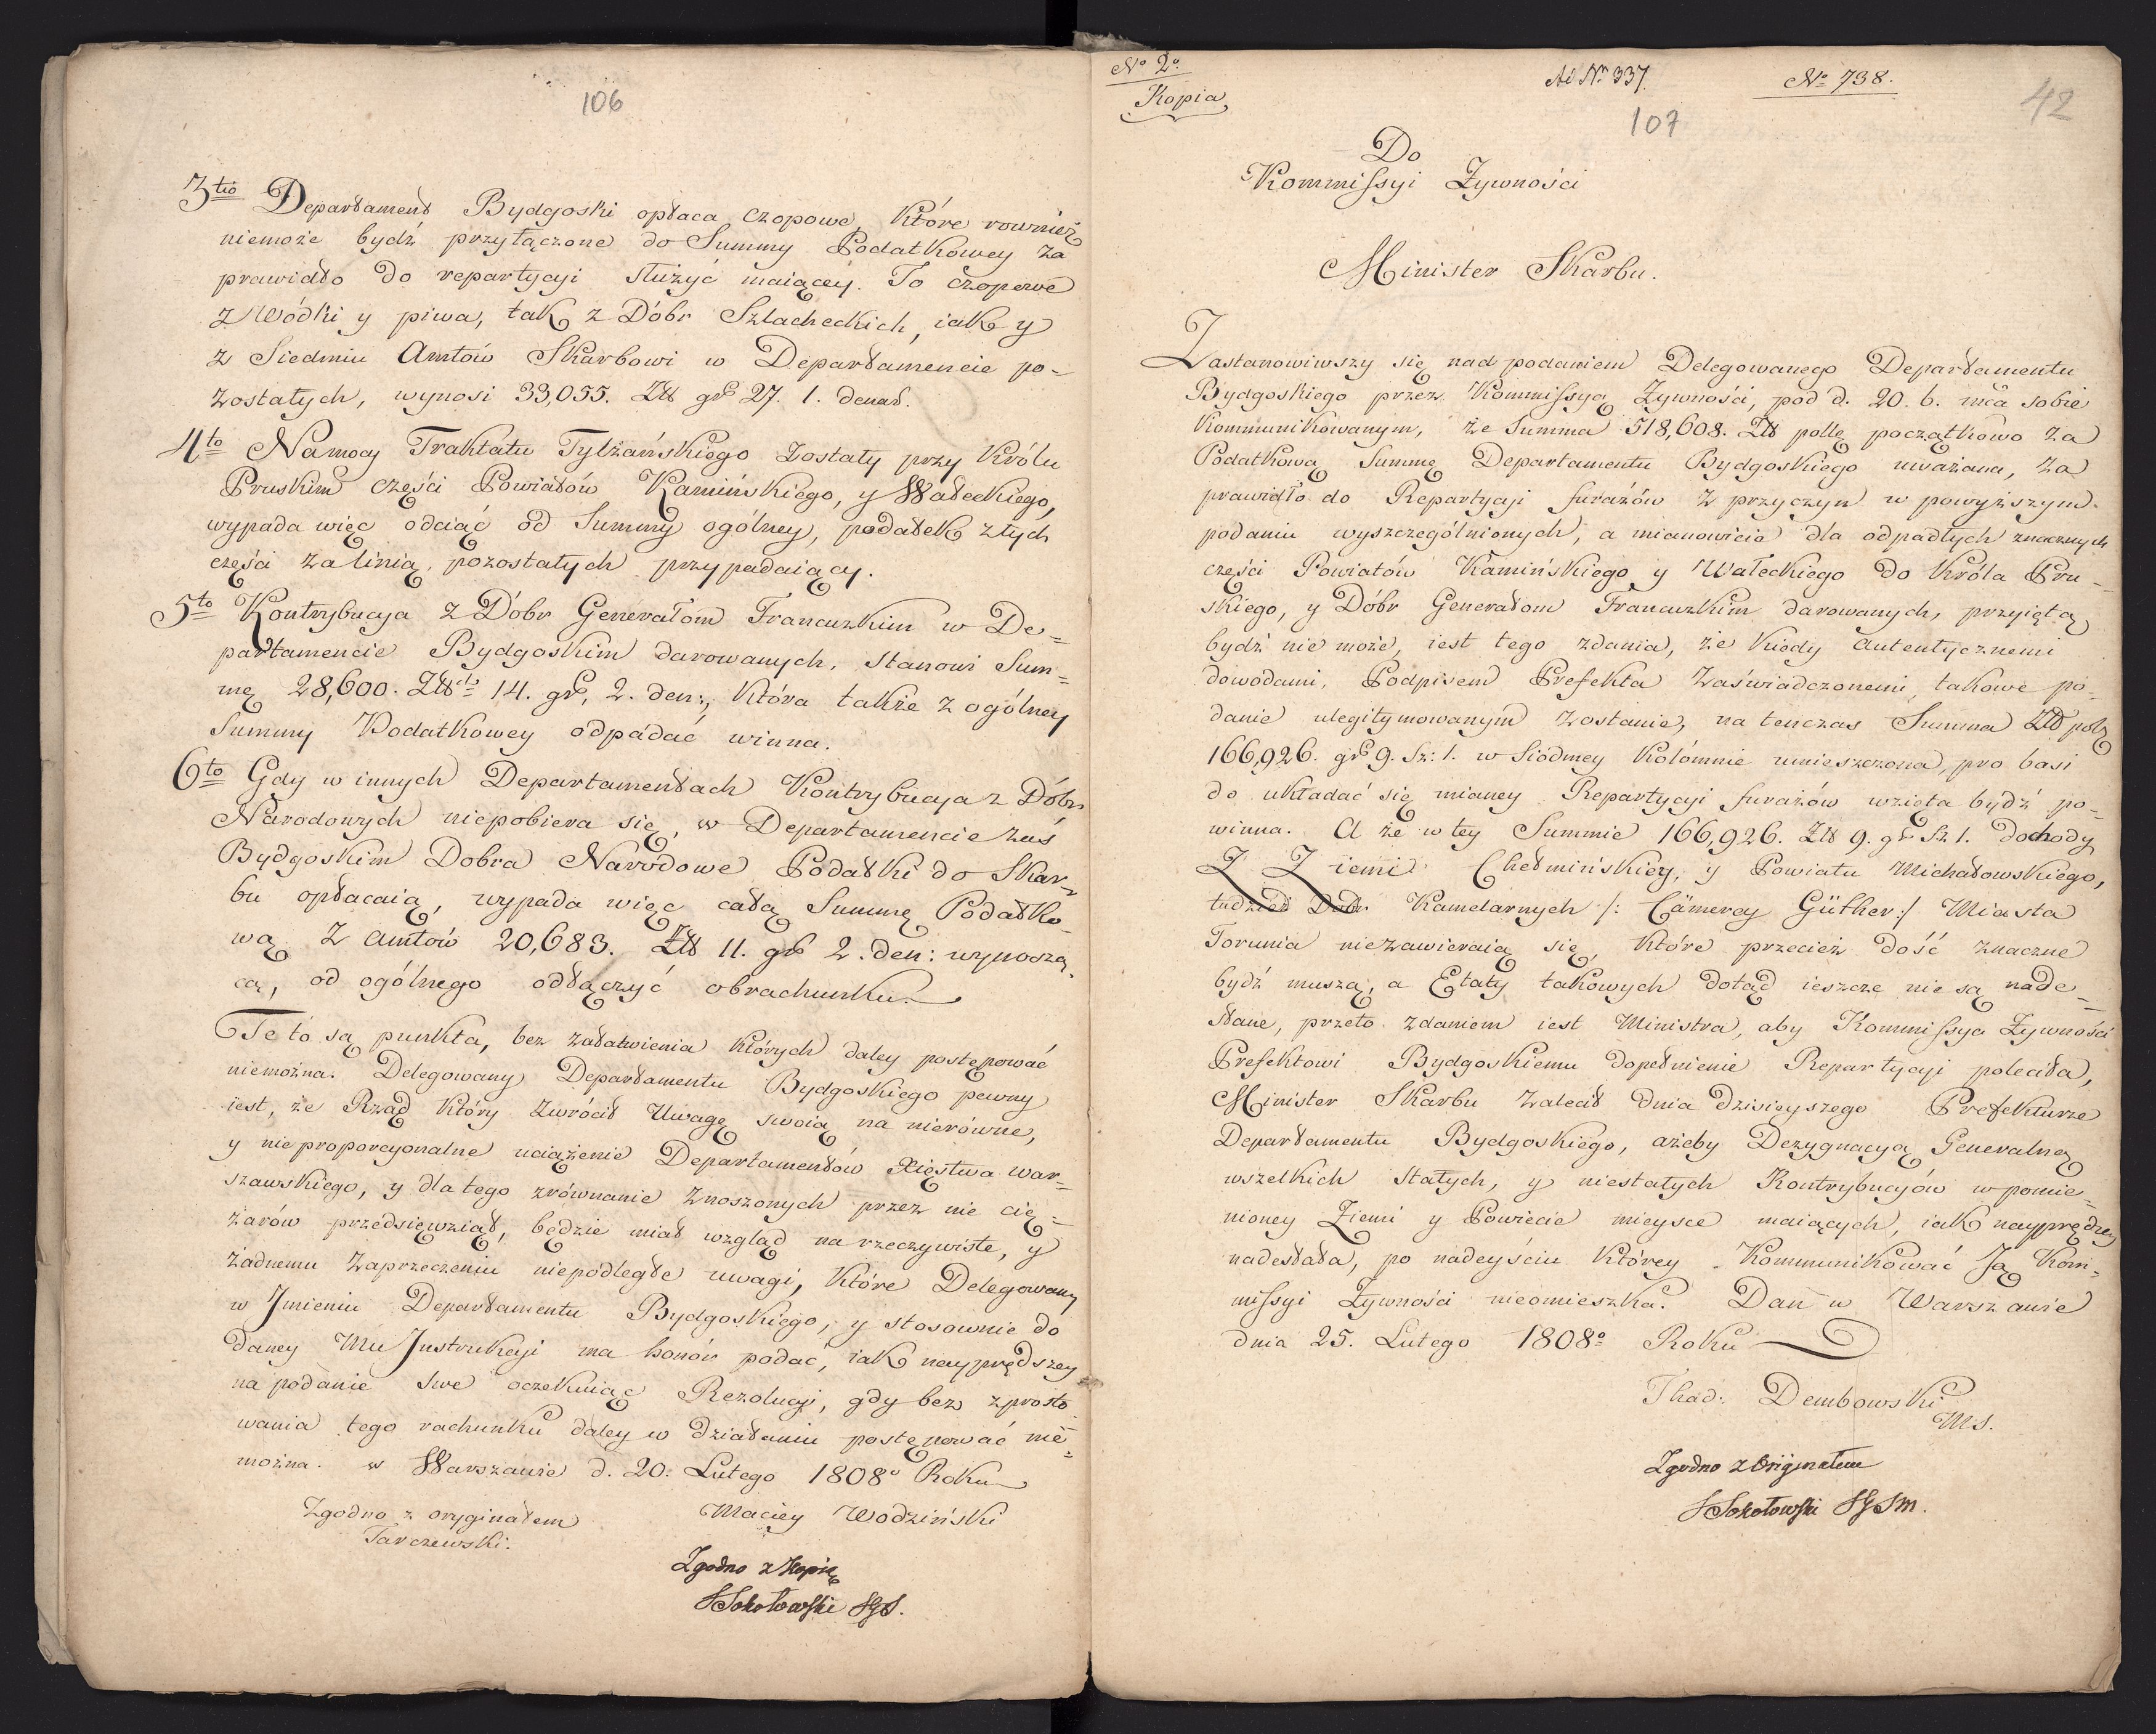 106
3tio Departament Bydgoski opłaca czopowe, które rownież
niemoże bydź przyłączone do Summy Podatkowey za
prawidło do repartycyi służyć maiącey. To czopowe
z Wódki y piwa, tak z Dóbr Szlacheckich, iak y
z Siedmiu Amtów Skarbowi w Departamencie po-
zostałych, wynosi 33,055. Zł gr 27. 1. denar.
4to Na mocy Traktatu Tylżańskiego zostały przy Królu
Pruskim części Powiatów Kamińskiego, y Wałeckiego,
wypada więc odciąć od Summy ogólney, podatek z tych
części za linią, pozostałych przypadaiący.
5to Kontrybucya z Dóbr Generałom Francuzkim w De=
partamencie Bydgoskim darowanych, stanowi Sum=
mę 28,600. Złł 14. gr, 2. den:, która także z ogólney
Summy Podatkowey odpadać winna.
6to Gdy w innych Departamentach Kontrybucya z Dóbr
Narodowych niepobiera się, w Departamencie zaś
Bydgoskim Dobra Narodowe Podatki do Skar=
bu opłacaią, wypada więc całą Summę Podatko-
wą z Amtów 20,683. Zł 11. gr 2. den: wynoszą-
cą, od ogólnego odłączyć obrachunku.
Te to są punkta, bez załatwienia których daley postępować
niemożna. Delegowany Departamentu Bydgoskiego pewny
iest, że Rząd który zwrócił Uwagę swoią na nierówne,
y nieproporcyonalne uciążenie Departamentów Xięstwa War=
szawskiego, y dla tego zrównanie znoszonych przez nie cię=
żarów przedsięwziął, będzie miał wzgląd na rzeczywiste, y
żadnemu zaprzeczeniu niepodległe uwagi, które Delegowany
w Jmieniu Departamentu Bydgoskiego, y stosownie do
daney Mu Jnstrukcyi ma honór podać, iak nayprędszey
na podanie swe oczekuiąc Rezolucyi, gdy bez zprosto
wania tego rachunku daley w działaniu postępować nie=
można. w Warszawie d. 20. Lutego 1808o Roku
Zgodno z oryginałem
Tarczewski.
Maciey Wodziński
Zgodno z kopią
Sokołowski SGS.
No 2o
Kopia
Ad Nr 337.
No 738.
107
42
Do
Kommissyi Żywności
Minister Skarbu.
Zastanowiwszy się nad podaniem Delegowanego Departamentu
Bydgoskiego przez Kommissyą Żywności, pod d. 20. b. mca sobie
kommunikowanym, że Summa 518,608. Zł polls początkowo za
Podatkową Summę Departamentu Bydgoskiego uważana, za
prawidło do Repartycyi furażów z przyczyn w powyższym
podaniu wyszczególnionych, a mianowicie dla odpadłych znacznych
części Powiatów Kamińskiego y Wałeckiego do Króla Pru-
skiego, y Dóbr Generałom Francuzkim darowanych, przyiętą
bydź nie może, iest tego zdania, że kiedy autentycznemi
dowodami, Podpisem Prefekta zaświadczonemi, takowe po-
danie ulegitymowanym zostanie, na tenczas Summa Zł pols
166,926. gr 9. Sz: 1. w Siódmey Kolómnie umieszczona, pro basi
do układać się mianey Repartycyi furażów wzięta bydź po-
winna. A że w tey Summie 166,926. Zł 9. gr Sz 1. dochody
Z Ziemi Chełmińskiey, y Powiatu Michałowskiego,
tudzież Dóbr Kamelarnych /: Cämerey Güther:/ Miasta
Torunia niezawieraią się, które przecież dość znaczne
bydź muszą, a Etaty takowych dotąd ieszcze nie są nade=
słane, przeto zdaniem iest Ministra, aby Kommissya Żywności
Prefektowi Bydgoskiemu dopełnienie Repartycyi poleciła,
Minister Skarbu zalecił dnia dzisieyszego Prefekturze
Departamentu Bydgoskiego, ażeby Dezygnacyą Generalną
wszelkich stałych, y niestałych Kontrybucyów w pomie=
nioney Ziemi y Powiecie mieysce maiących, iak nayprędzey
nadesłała, po nadeyściu którey Kommunikować Ją Kom=
missyi Żywności nieomieszka. Dan w Warszawie
dnia 25. Lutego 1808o Roku
Thad: Dembowski
MS.
Zgodno z Originałem
Sokołowski SGSM.